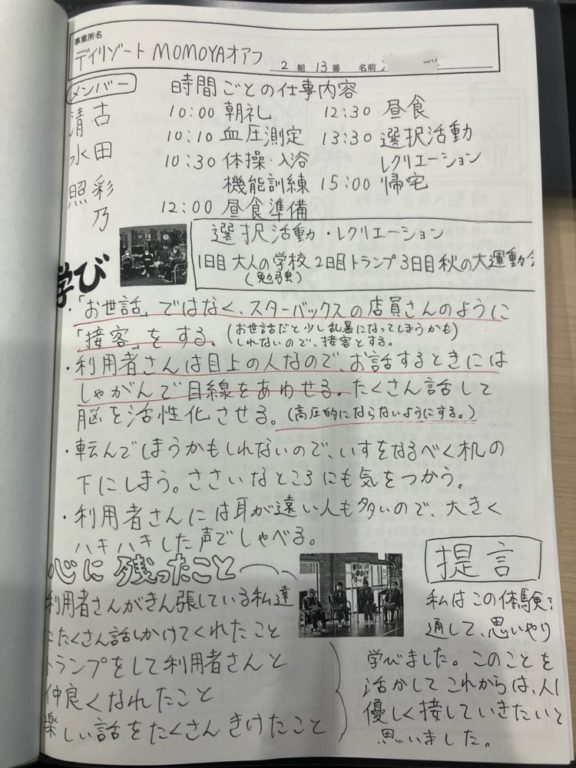 事業所名
デイリゾート MOMOYAオアフ
2組 13番 名前
メンバー
清水 照
古田 彩乃
時間ごとの仕事内容
10:00 朝礼
10:10 血圧測定
10:30 体操・入浴
機能訓練
12:00 昼食準備
12:30 昼食
13:30 選択活動
レクリエーション
15:00 帰宅
選択活動・レクリエーション
1日目 大人の学校 2日目 トランプ 3日目 秋の大運動
(勉強)
学び
・「お世話」ではなく、スターバックスの店員さんのように
「接客」をする。(お世話だと少し乱暴になってしまうかも
しれないので、接客とする。
・利用者さんは目上の人なので、お話するときには
しゃがんで目線をあわせる。たくさん話して
脳を活性化させる。(高圧的にならないようにする。)
・転んでしまうかもしれないので、いすをなるべく机の
下にしまう。ささいなところにも気をつかう。
・利用者さんには耳が遠い人も多いので、大きく
ハキハキした声でしゃべる。
心に残ったこと
利用者さんがきん張している私達
にたくさん話しかけてくれたこと
トランプをして利用者さんと
仲良くなれたこと
楽しい話をたくさんきけたこと
提言
私はこの体験
通して、思いやり
学びました。このことを
活かしてこれからは、人に
優しく接していきたいと
思いました。